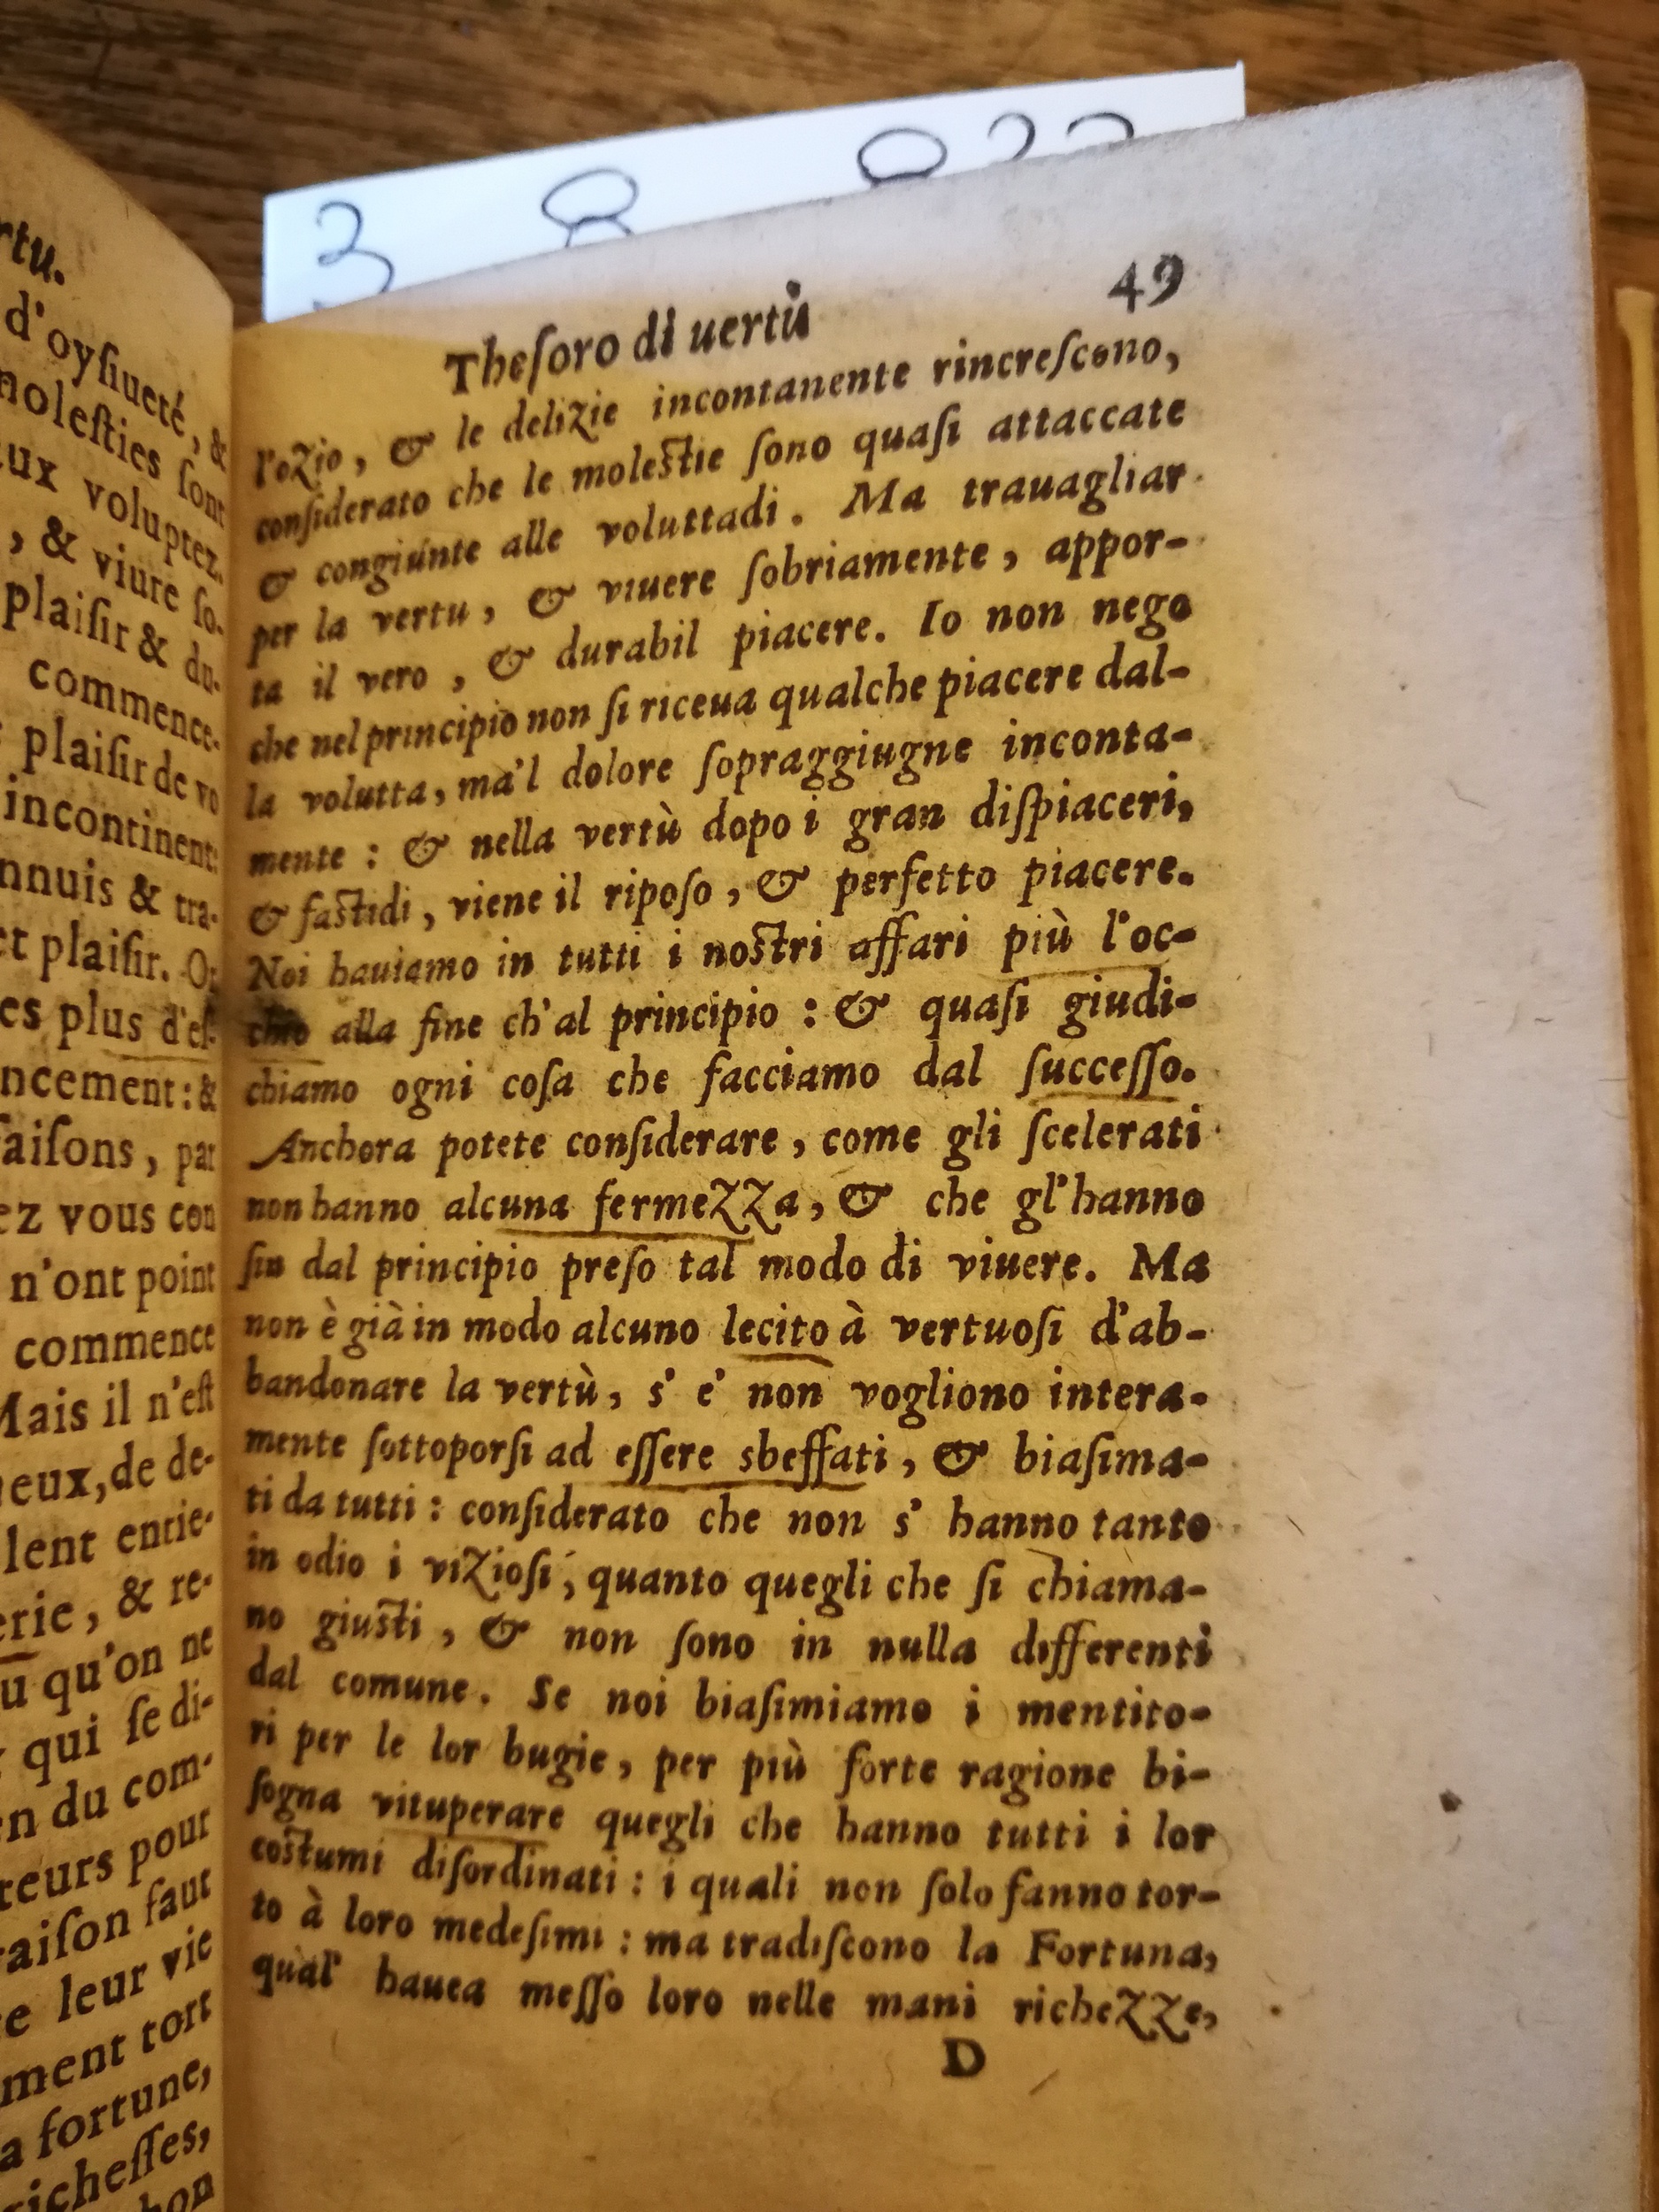 3 8
rtu.
d'oyſiueté, &
moleſties ſont
ux voluptez.
, & viure ſo-
plaiſir & du-
commence-
plaiſir de vo
incontinent:
nnuis & tra-
et plaiſir. Or
es plus d'eſ-
ncement: &
faiſons, par
ez vous con
n'ont point
commence
Mais il n'eſt
eux, de de-
lent entie-
erie, & re-
u qu'on ne
qui ſe di-
en du com-
teurs pour
raiſon faut
e leur vie
ment tort
a fortune,
richeſſes,
bon
Theſoro di uertù 49
l'ozio, & le delizie incontanente rincreſcono,
conſiderato che le moleſtie ſono quaſi attaccate
& congiunte alle voluttadi. Ma trauagliar
per la vertu, & viuere ſobriamente, appor-
ta il vero, & durabil piacere. Io non nego
che nel principio non ſi riceua qualche piacere dal-
la volutta, ma'l dolore ſopraggiugne inconta-
mente: & nella vertù dopo i gran diſpiaceri,
& faſtidi, viene il ripoſo, & perfetto piacere.
Noi hauiamo in tutti i noſtri affari più l'oc-
chio alla fine ch'al principio: & quaſi giudi-
chiamo ogni coſa che facciamo dal ſucceſſo.
Anchora potete conſiderare, come gli ſcelerati
non hanno alcuna fermezza, & che gl'hanno
ſin dal principio preſo tal modo di viuere. Ma
non è già in modo alcuno lecito à vertuoſi d'ab-
bandonare la vertù, s' e' non vogliono intera-
mente ſottoporſi ad eſſere sbeffati, & biaſima-
ti da tutti: conſiderato che non s' hanno tanto
in odio i vizioſi, quanto quegli che ſi chiama-
no giuſti, & non ſono in nulla differenti
dal comune. Se noi biaſimiamo i mentito-
ri per le lor bugie, per più forte ragione bi-
ſogna vituperare quegli che hanno tutti i lor
coſtumi diſordinati: i quali non ſolo fanno tor-
to à loro medeſimi: ma tradiſcono la Fortuna,
qual' hauea meſſo loro nelle mani richezze,
D